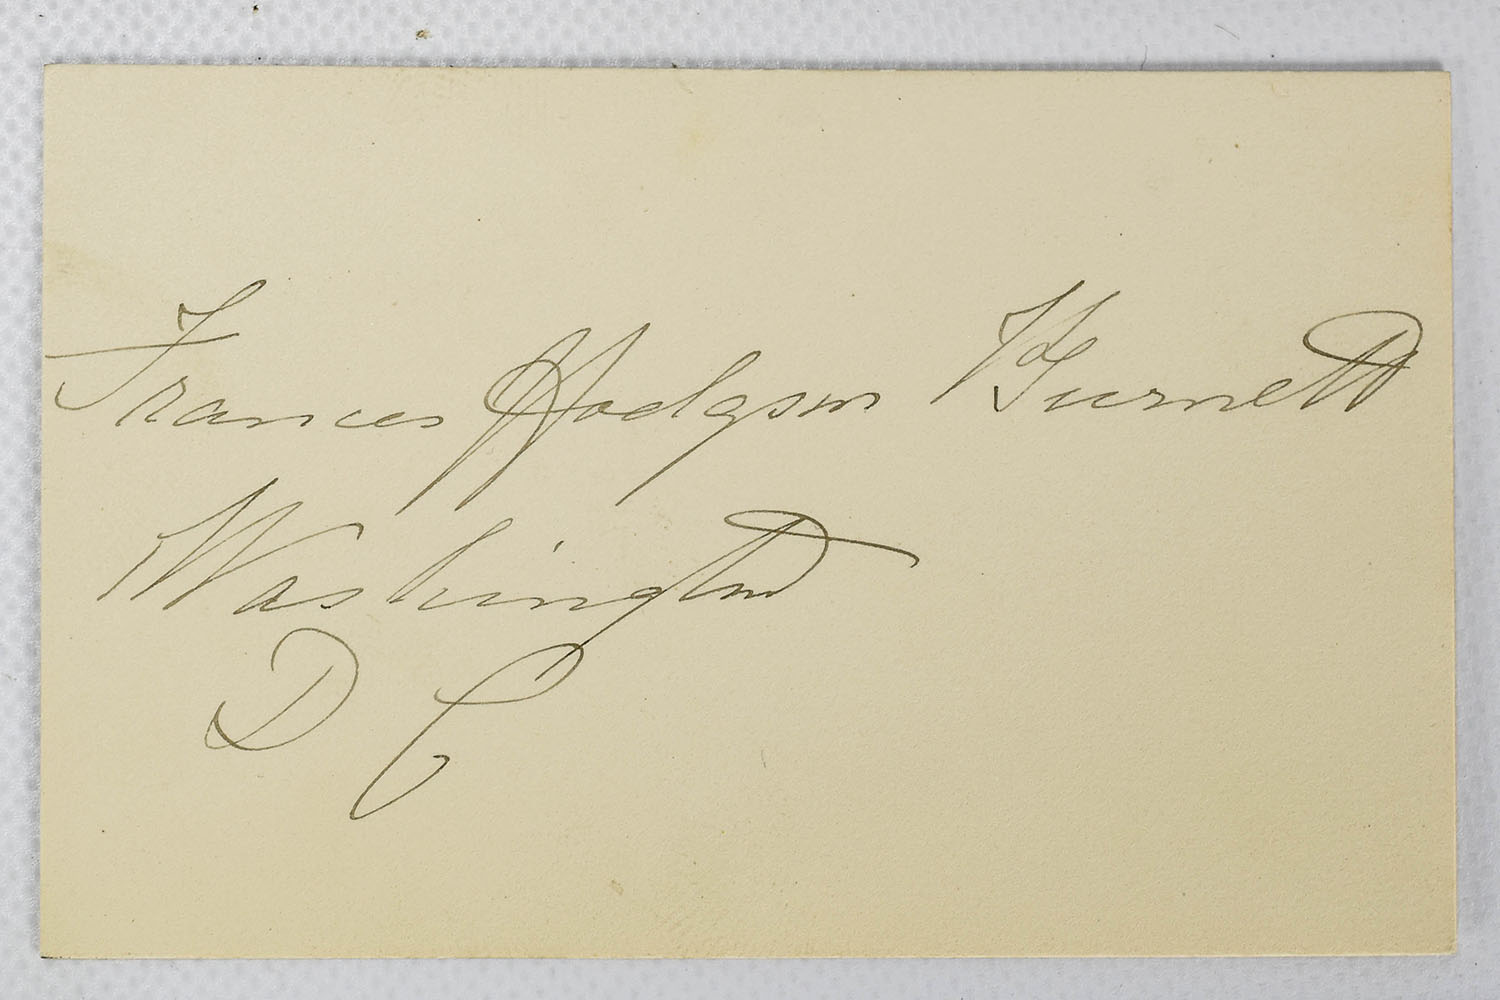 Frances Hodgson Burnett
Washington
D C